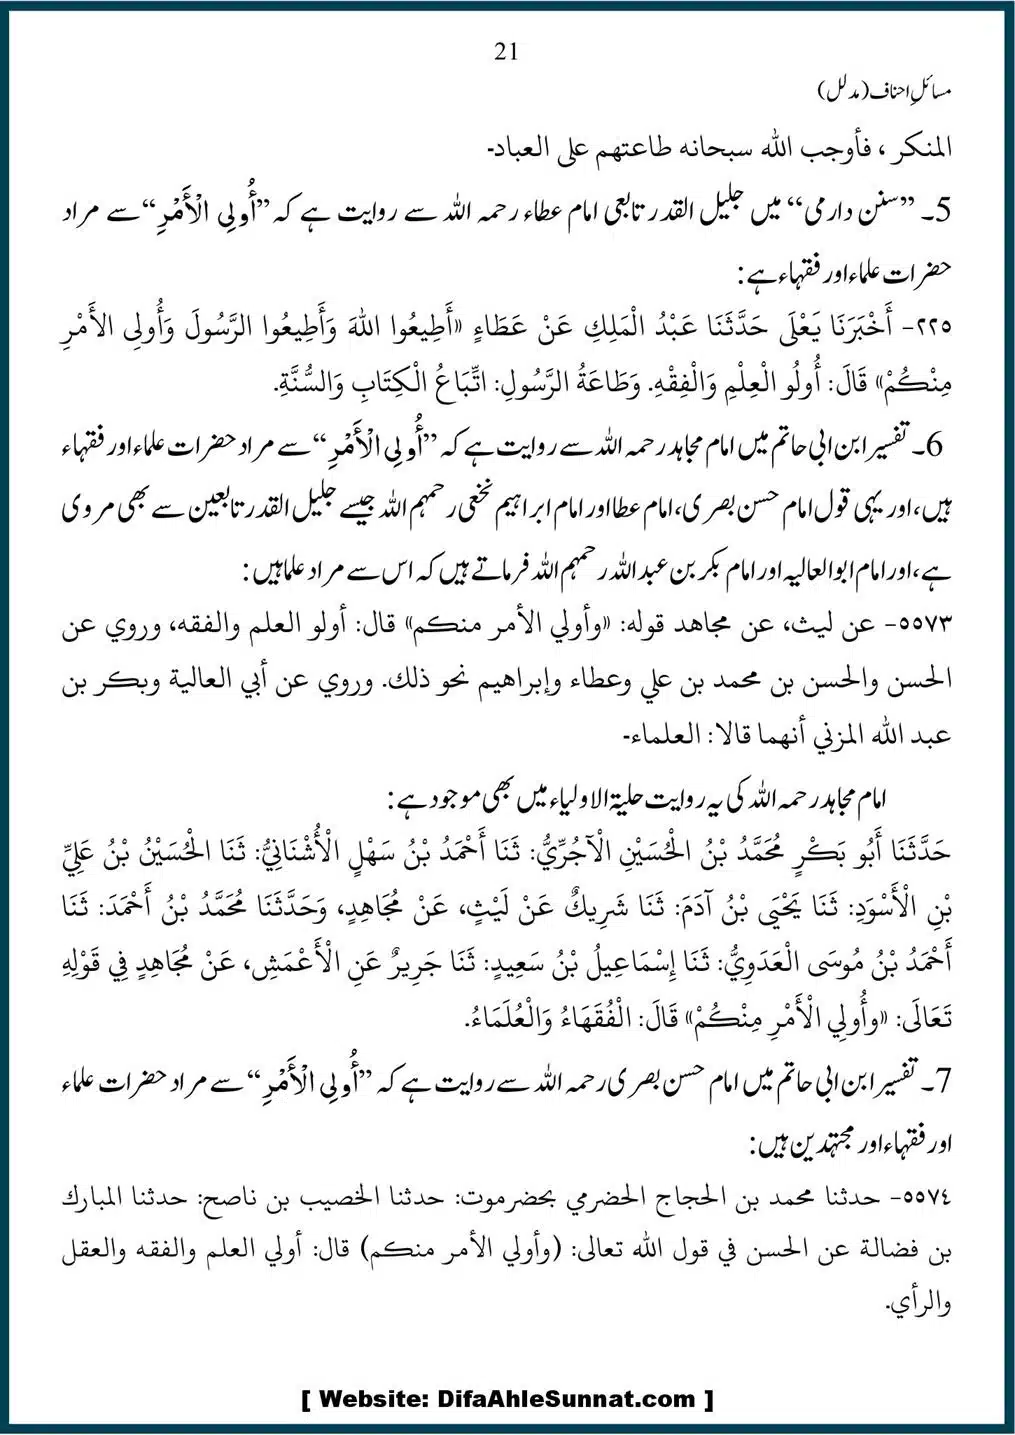 21
مسائلِ احناف (مدلل)
المنكر ، فأوجب الله سبحانه طاعتهم على العباد-
5۔ ”سنن دارمی“ میں جلیل القدر تابعی امام عطاء رحمہ اللہ سے روایت ہے کہ ”أُولِی الْأَمْرِ“ سے مراد
حضرات علماء اور فقہاء ہے:
٢٢٥- أَخْبَرَنَا يَعْلَى حَدَّثَنَا عَبْدُ الْمَلِكِ عَنْ عَطَاءٍ «أَطِيعُوا اللهَ وَأَطِيعُوا الرَّسُولَ وَأُولِي الأَمْرِ
مِنْكُمْ» قَالَ: أُولُو الْعِلْمِ وَالْفِقْهِ. وَطَاعَةُ الرَّسُولِ: اتِّبَاعُ الْكِتَابِ وَالسُّنَّةِ.
6۔ تفسیر ابن ابی حاتم میں امام مجاہد رحمہ اللہ سے روایت ہے کہ ”أُولِی الْأَمْرِ“ سے مراد حضرات علماء اور فقہاء
ہیں، اور یہی قول امام حسن بصری، امام عطا اور امام ابراہیم نخعی رحمہم اللہ جیسے جلیل القدر تابعین سے بھی مروی
ہے، اور امام ابو العالیہ اور امام بکر بن عبد اللہ رحمہم اللہ فرماتے ہیں کہ اس سے مراد علما ہیں:
٥٥٧٣- عن ليث، عن مجاهد قوله: «وأولي الأمر منكم» قال: أولو العلم والفقه، وروي عن
الحسن والحسن بن محمد بن علي وعطاء وإبراهيم نحو ذلك. وروي عن أبي العالية وبكر بن
عبد الله المزني أنهما قالا: العلماء-
امام مجاہد رحمہ اللہ کی یہ روایت حلیۃ الاولیاء میں بھی موجود ہے:
حَدَّثَنَا أَبُو بَكْرٍ مُحَمَّدُ بْنُ الْحُسَيْنِ الْآجُرِّيُّ: ثَنَا أَحْمَدُ بْنُ سَهْلٍ الْأُشْنَانِيُّ: ثَنَا الْحُسَيْنُ بْنُ عَلِيِّ
بْنِ الْأَسْوَدِ: ثَنَا يَحْيَى بْنُ آدَمَ: ثَنَا شَرِيكٌ عَنْ لَيْثٍ، عَنْ مُجَاهِدٍ، وَحَدَّثَنَا مُحَمَّدُ بْنُ أَحْمَدَ: ثَنَا
أَحْمَدُ بْنُ مُوسَى الْعَدَوِيُّ: ثَنَا إِسْمَاعِيلُ بْنُ سَعِيدٍ: ثَنَا جَرِيرٌ عَنِ الْأَعْمَشِ، عَنْ مُجَاهِدٍ فِي قَوْلِهِ
تَعَالَى: «وأُولِي الْأَمْرِ مِنْكُمْ» قَالَ: الْفُقَهَاءُ وَالْعُلَمَاءُ.
7۔ تفسیر ابن ابی حاتم میں امام حسن بصری رحمہ اللہ سے روایت ہے کہ ”أُولِی الْأَمْرِ“ سے مراد حضرات علماء
اور فقہاء اور مجتہدین ہیں:
٥٥٧٤- حدثنا محمد بن الحجاج الحضرمي بحضرموت: حدثنا الخصيب بن ناصح: حدثنا المبارك
بن فضالة عن الحسن في قول الله تعالى: (وأولي الأمر منكم) قال: أولي العلم والفقه والعقل
والرأي.
[ Website: DifaAhleSunnat.com ]